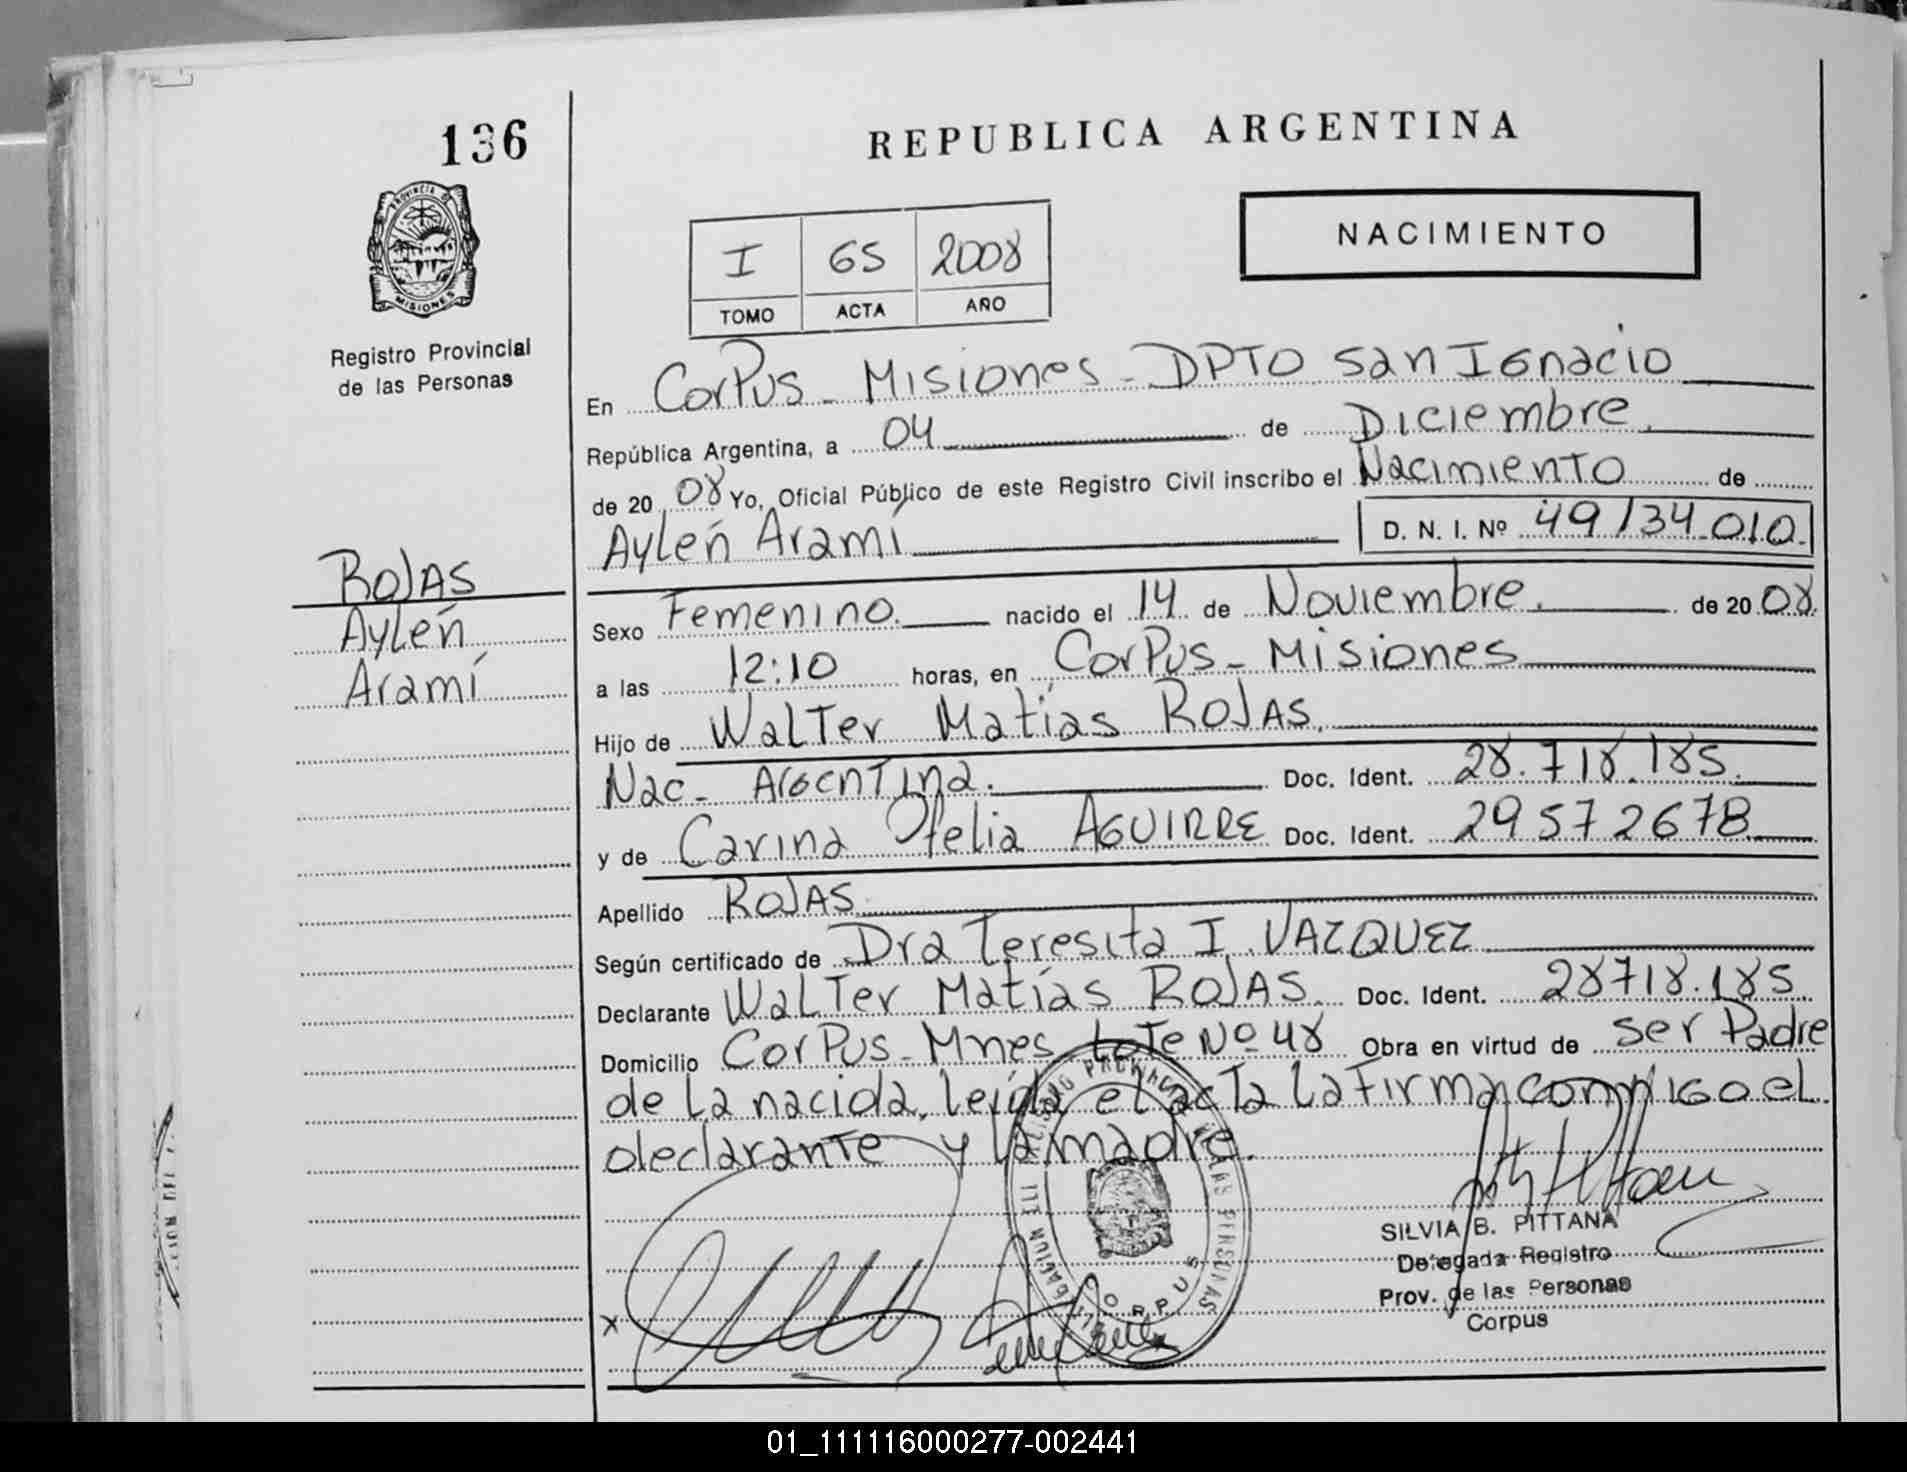 136
REPUBLICA ARGENTINA
PROVINCIA DE
MISIONES
Registro Provincial
de las Personas
NACIMIENTO
I 65 2008
TOMO ACTA AÑO
En Corpus - Misiones - DPTO San Ignacio
República Argentina, a 04 de Diciembre.
de 20 08 Yo, Oficial Público de este Registro Civil inscribo el Nacimiento de
Aylén Aramí D. N. I. Nº 49134.010.
ROJAS
Aylén
Aramí
Sexo Femenino. nacido el 14 de Noviembre. de 20 08.
a las 12:10 horas, en Corpus - Misiones
Hijo de Walter Matías ROJAS.
Nac - Argentina. Doc. Ident. 28.718.185.
y de Carina Ofelia AGUIRRE Doc. Ident. 29572678
Apellido ROJAS
Según certificado de Dra Teresita I. VAZQUEZ
Declarante Walter Matías ROJAS. Doc. Ident. 28718.185.
Domicilio Corpus - Mnes Lote Nº 48 Obra en virtud de ser Padre
de la nacida, leída el acta la firman conmigo el
declarante y la madre.
x
CORPUS
SILVIA B. PITTANA
Delegada Registro
Prov. de las Personas
Corpus
01_111116000277-002441